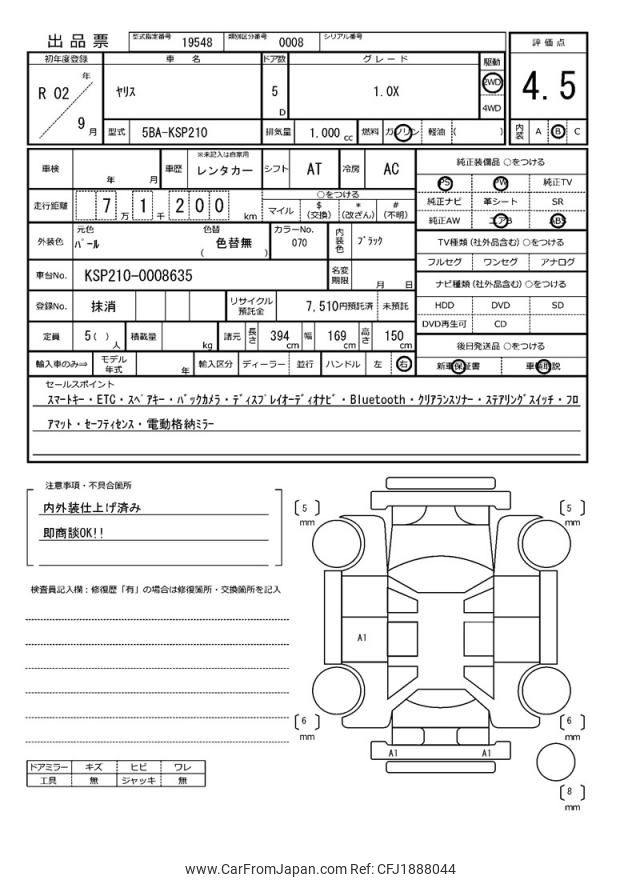 出品票 型式指定番号 19548 類別区分番号 0008 シリアル番号
評価点
4.5
内装 A B C
初年度登録 車名 ドア数 グレード 駆動
R 02 年 9 月
ヤリス 5 D 1.0X 2WD 4WD
型式 5BA-KSP210 排気量 1.000 cc 燃料 ガソリン 軽油 ( )
車検 年 月 車歴 ※未記入は自家用 レンタカー シフト AT 冷房 AC
走行距離 7 万 1 千 2 0 0 km ○をつける マイル $ (交換) * (改ざん) # (不明)
外装色 元色 パール 色替 色替無 ( ) カラーNo. 070 内装色 ブラック
車台No. KSP210-0008635 名変期限 月 日
登録No. 抹消 リサイクル預託金 7,510円預託済 未預託
定員 5 ( ) 人 積載量 kg 諸元 長さ 394 cm 幅 169 cm 高さ 150 cm
輸入車のみ⇒ モデル年式 年 輸入区分 ディーラー 並行 ハンドル 左 右
純正装備品 ○をつける
PS PW 純正TV
純正ナビ 革シート SR
純正AW エアB ABS
TV種類 (社外品含む) ○をつける
フルセグ ワンセグ アナログ
ナビ種類 (社外品含む) ○をつける
HDD DVD SD
DVD再生可 CD
後日発送品 ○をつける
新車保証書 車輌取説
セールスポイント
スマートキー・ETC・スペアキー・バックカメラ・ディスプレイオーディオナビ・Bluetooth・クリアランスソナー・ステアリングスイッチ・フロ
アマット・セーフティセンス・電動格納ミラー
注意事項・不具合箇所
内外装仕上げ済み
即商談OK!!
検査員記入欄：修復歴「有」の場合は修復箇所・交換箇所を記入
5 mm
5 mm
A1
6 mm
6 mm
A1 A1
8 mm
ドアミラー キズ ヒビ ワレ
工具 無 ジャッキ 無
www.CarFromJapan.com Ref: CFJ1888044